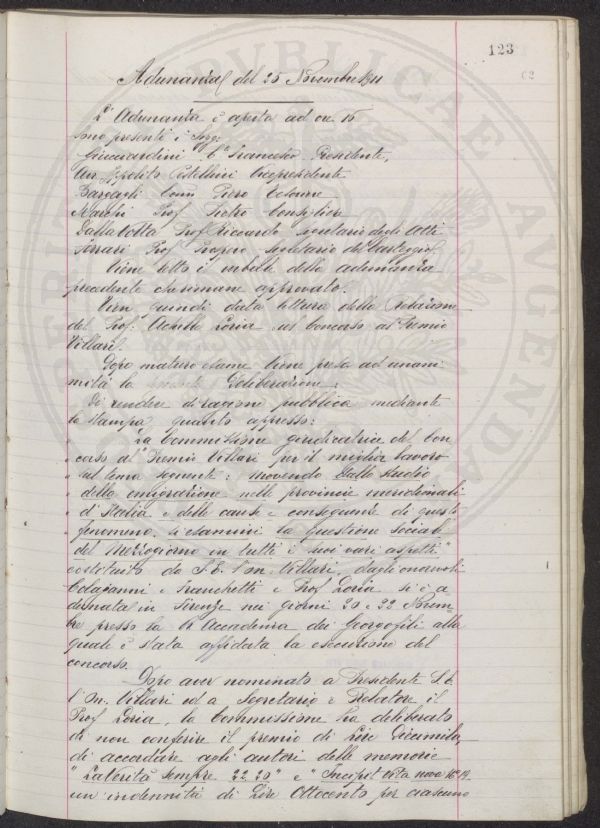 123
62
Adunanza del 25 Novembre 1911
L'Adunanza è aperta ad ore 15
Sono presenti i Sigg.
Guicciardini C.te Francesco Presidente,
Avv. Ippolito Pestellini Vicepresidente
Bargagli Comm Piero Economo
Marchi Prof Pietro Consigliere
Dalla Volta Prof. Riccardo Segretario degli Atti
Ferrari Prof Prospero Segretario del Carteggio.
Viene letto il verbale della adunanza
precedente che rimane approvato.
Vien quindi data lettura della relazione
del Prof. Achille Loria sul Concorso al Premio
Villari.
Dopo maturo esame viene presa ad unani
mità la deliberazione:
Di rendere di ragione pubblica mediante
la stampa quanto appresso:
La Commissione giudicatrice del Con
" corso al Premio Villari per il miglior lavoro
" sul tema seguente: Movendo dallo studio
della emigrazione nelle provincie meridionali
d'Italia e delle cause e conseguenze di questo
fenomeno, si esamini la questione sociale
del Mezzogiorno in tutti i suoi vari aspetti"
costituita da S.E. l'on. Villari, dagli onorevoli
Colajanni e Franchetti e Prof Loria, si è a
dunata in Firenze nei giorni 20 e 22 Novem
bre presso la R. Accademia dei Georgofili alla
quale è stata affidata la esecuzione del
concorso.
Dopo aver nominato a Presidente S.E.
l'on. Villari ed a Segretario e Relatore il
Prof Loria, la Commissione ha deliberato
di non conferire il premio di Lire
di accordare agli autori delle memorie
" Sempre 22.20" e "Incipit vita nova N° 19
un'indennità di Lire Ottocento per ciascuno